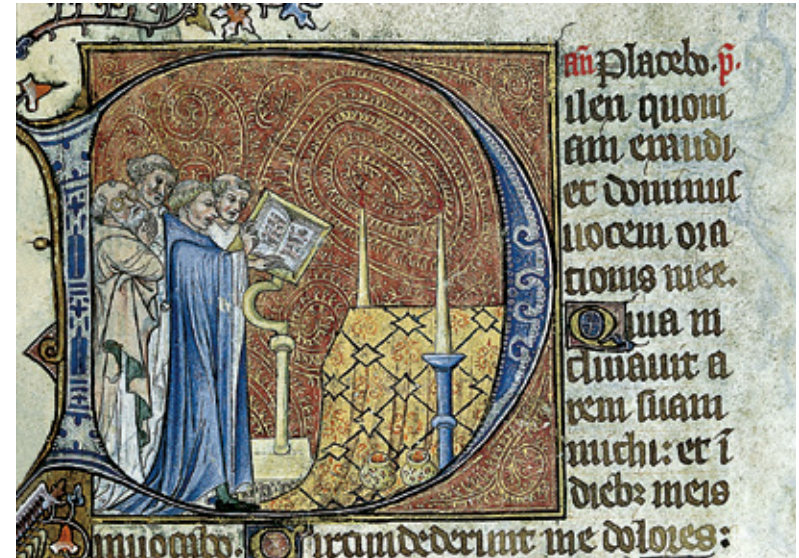 añ Placebo. p̄.
Dilexi quoni
am exaudi
et dominus
uocem ora
tionis mee.
Quia in
clinauit a
rem suam
michi: et ī
dieb; meis
inuocabo. Circumdederunt me dolores: